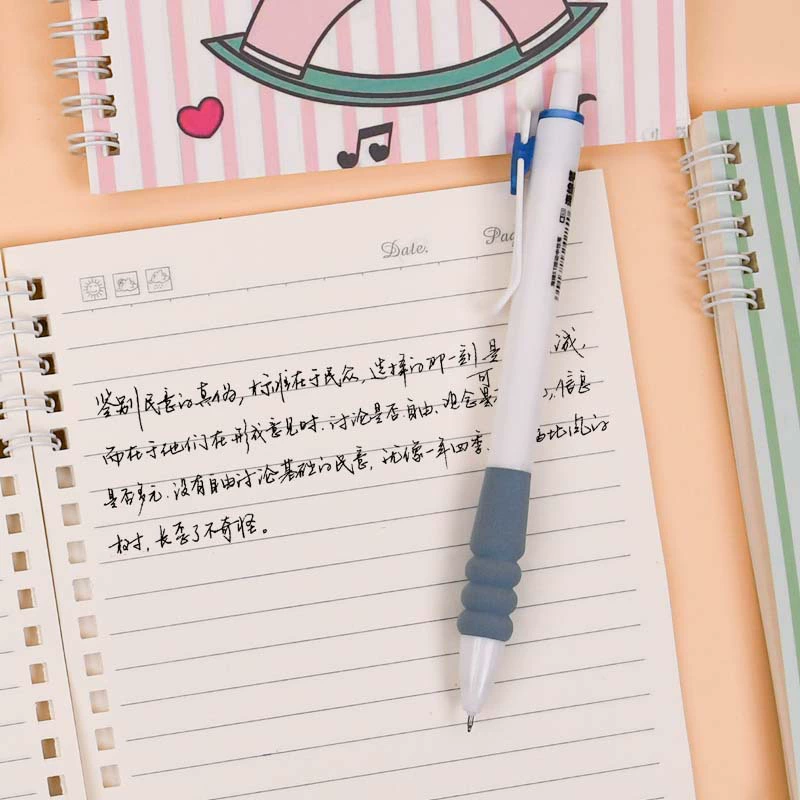 Date.
鉴别民意的真伪,标准在于民众,选择的那一刻是 诚,
而在于他们在形成意见时.讨论是否自由、观念是 、信息
是否多元.没有自由讨论基础的民意,就像一年四季. 北风的
树,长歪了不奇怪。